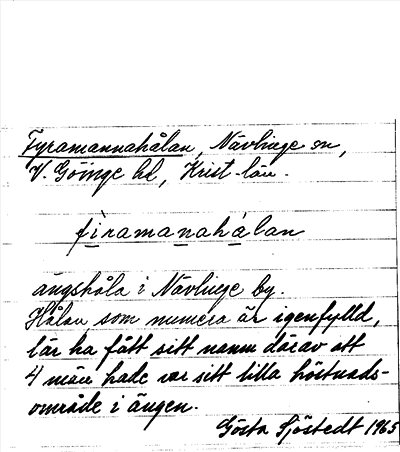 Fyramannahålan, Nävlinge sn,
V. Göinge hd, Krist. län.
fìramanahálan
ängshåla i Nävlinge by.
Hålan, som numera är igenfylld,
lär ha fått sitt namn därav att
4 män hade var sitt lilla höstnads-
område i ängen.
Gösta Sjöstedt 1965